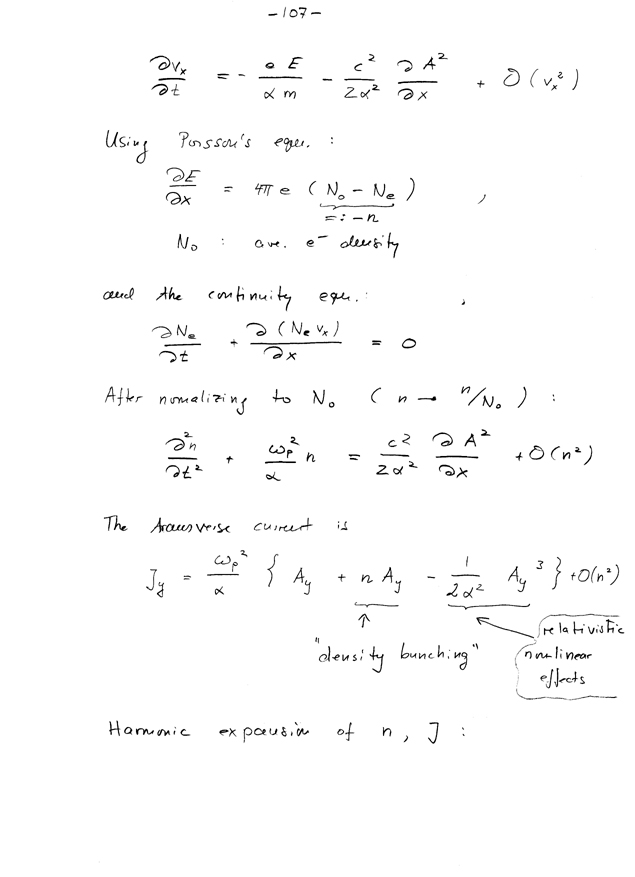 -107-
∂vₓ/∂t = - e E/α m - c²/2α² ∂A²/∂x + O(vₓ²)
Using Poisson's equ. :
∂E/∂x = 4π e (N₀ - Nₑ) ,
=: -n
N₀ : ave. e⁻ density
and the continuity equ. : ,
∂Nₑ/∂t + ∂(Nₑ vₓ)/∂x = 0
After nomalizing to N₀ ( n → n/N₀ ) :
∂²n/∂t² + ωₚ²/α n = c²/2α² ∂A²/∂x + O(n²)
The transverse current is
J_y = ωₚ²/α { A_y + n A_y - 1/2α² A_y³ } + O(n²)
↑
"density bunching"
relativistic
nonlinear
effects
Harmonic expansion of n, J :